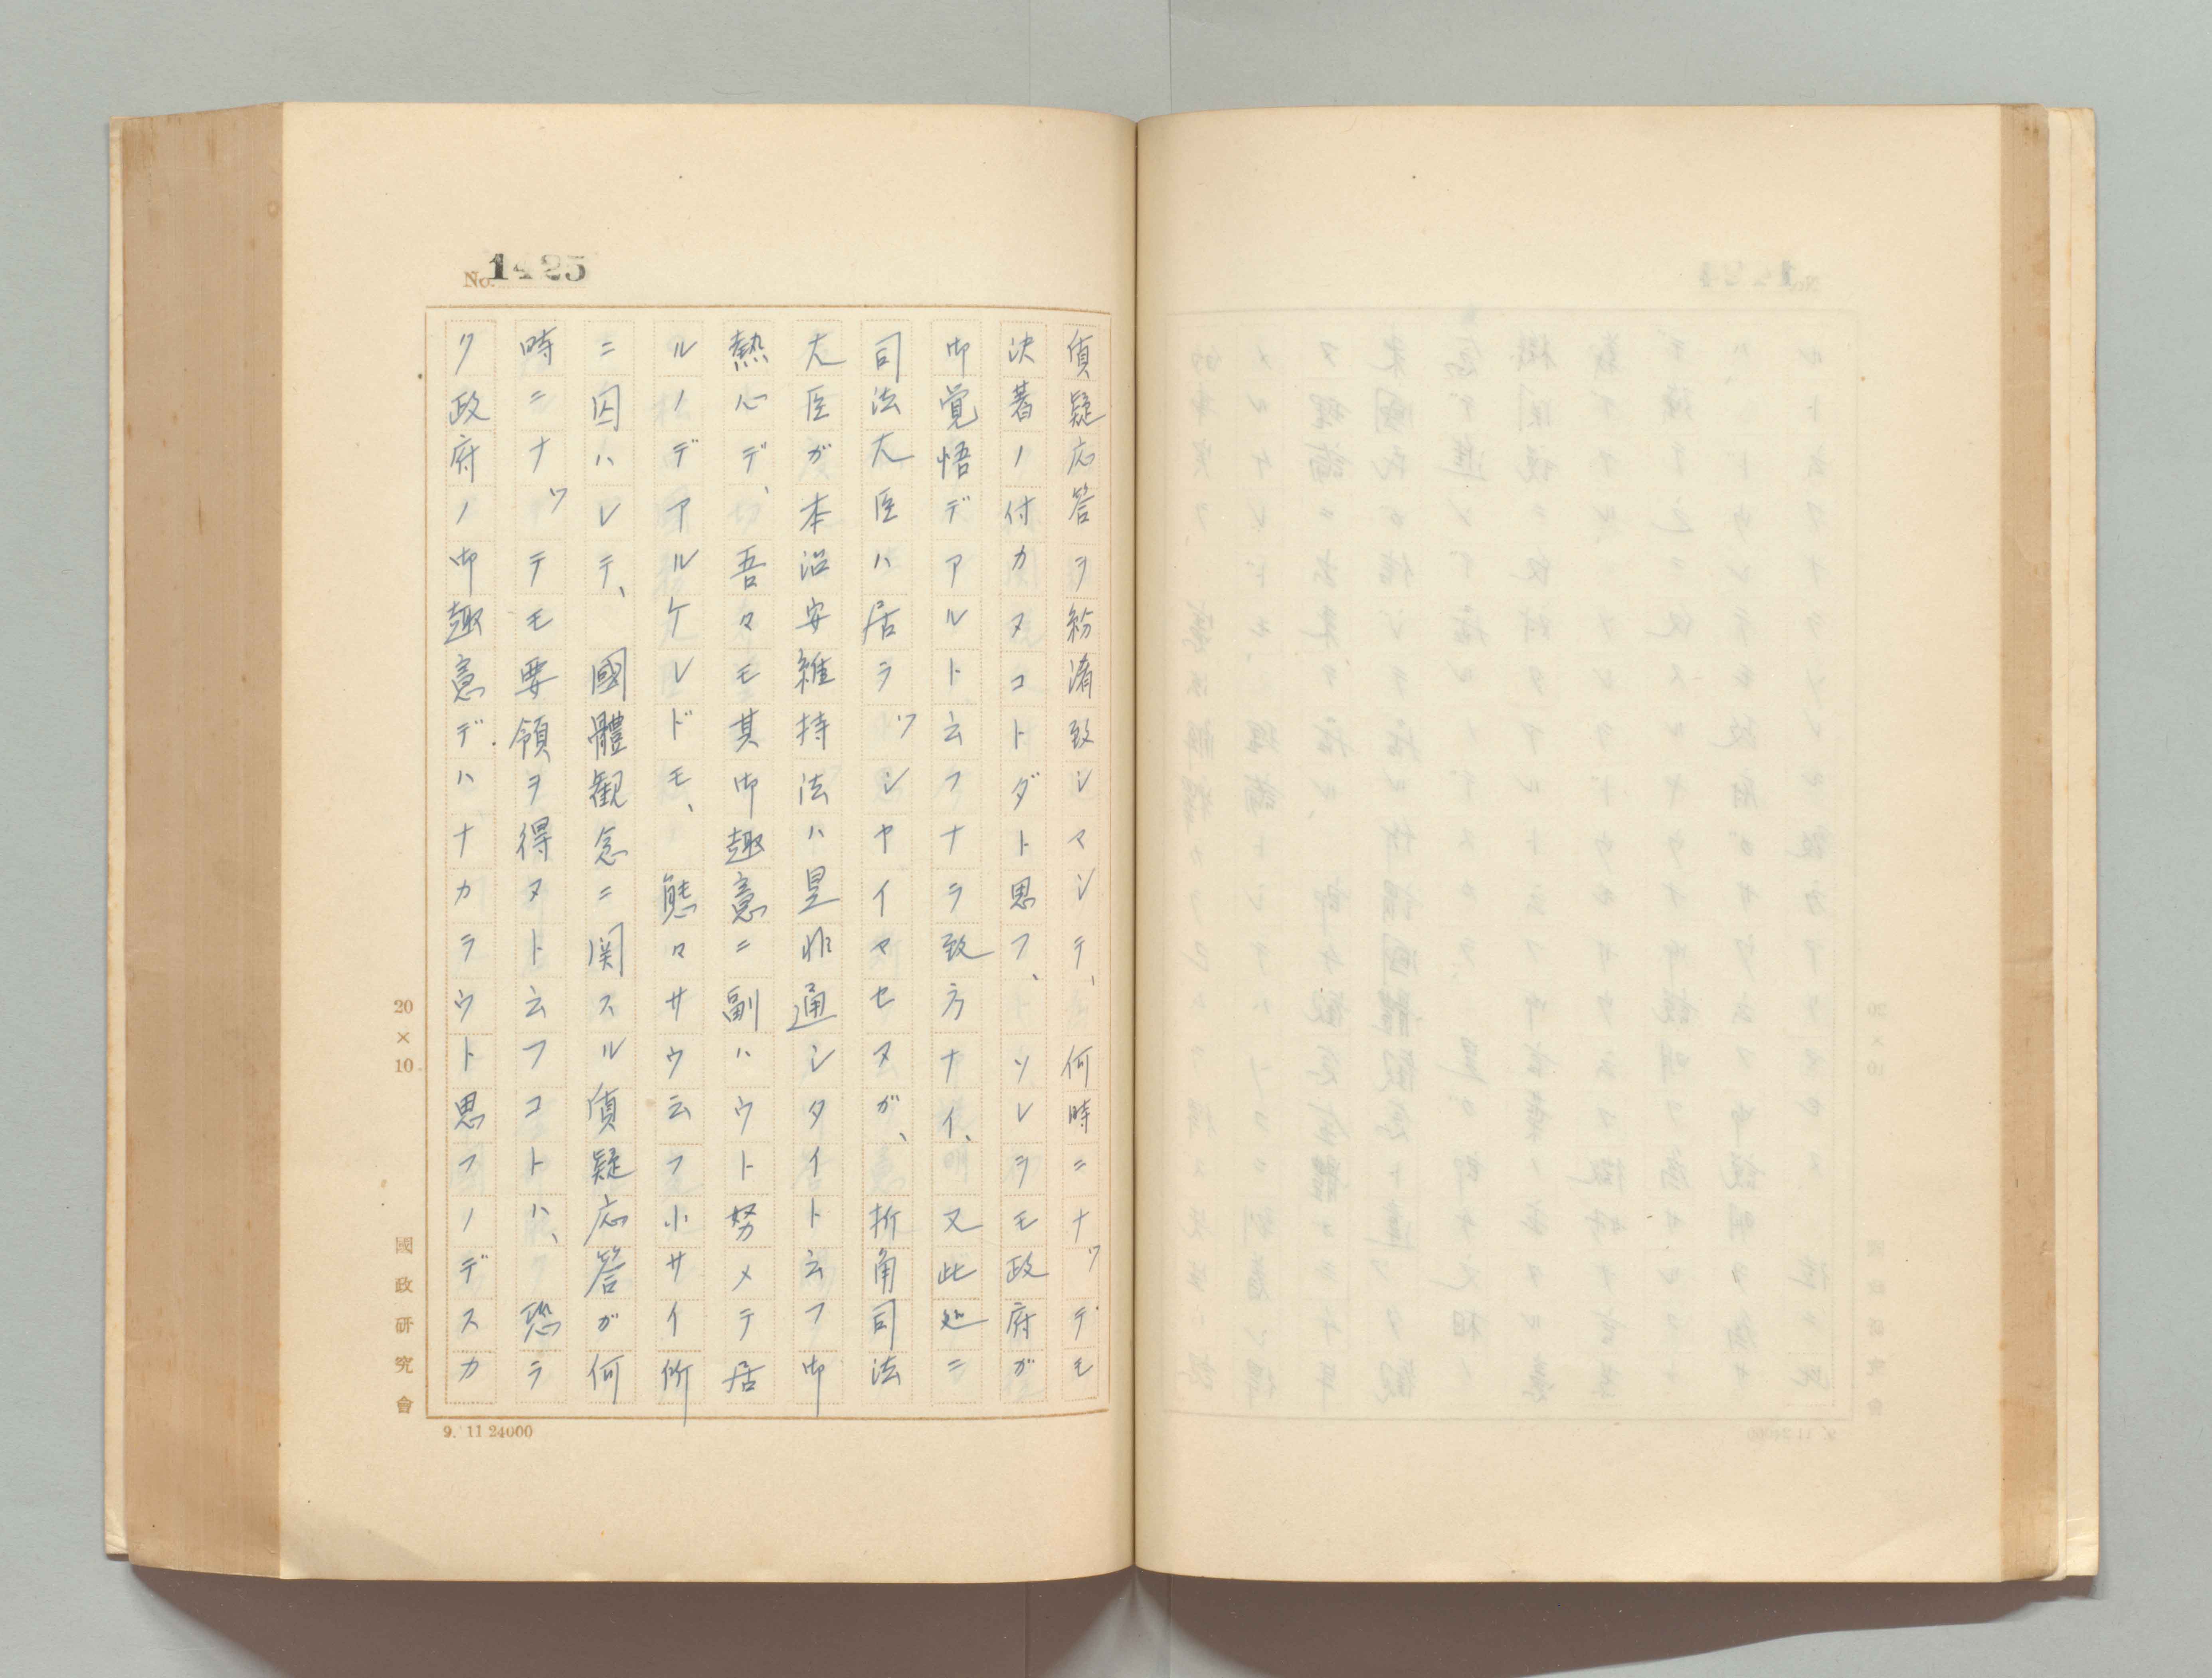 No. 1425
質疑応答ヲ紛淆致シマシテ、何時ニナツデモ
決著ノ付カヌコトダト思フ、ソレヲモ政府ガ
御覚悟デアルト云フナラ致方ナイ、又此処ニ
司法大臣ハ居ラツシヤイマセヌガ、折角司法
大臣ガ本治安維持法ハ是非通シタイト云フ御
熱心デ、吾々モ其御趣意ニ副ハウト努メテ居
ルノデアルケレドモ、態々サウ云フ小サイ所
ニ囚ハレテ、國體観念ニ関スル質疑応答ガ何
時ニナツテモ要領ヲ得ヌト云フコトハ、恐ラ
ク政府ノ御趣意デハナカラウト思フノデスカ
20×10
國政研究會
9. 11 24000